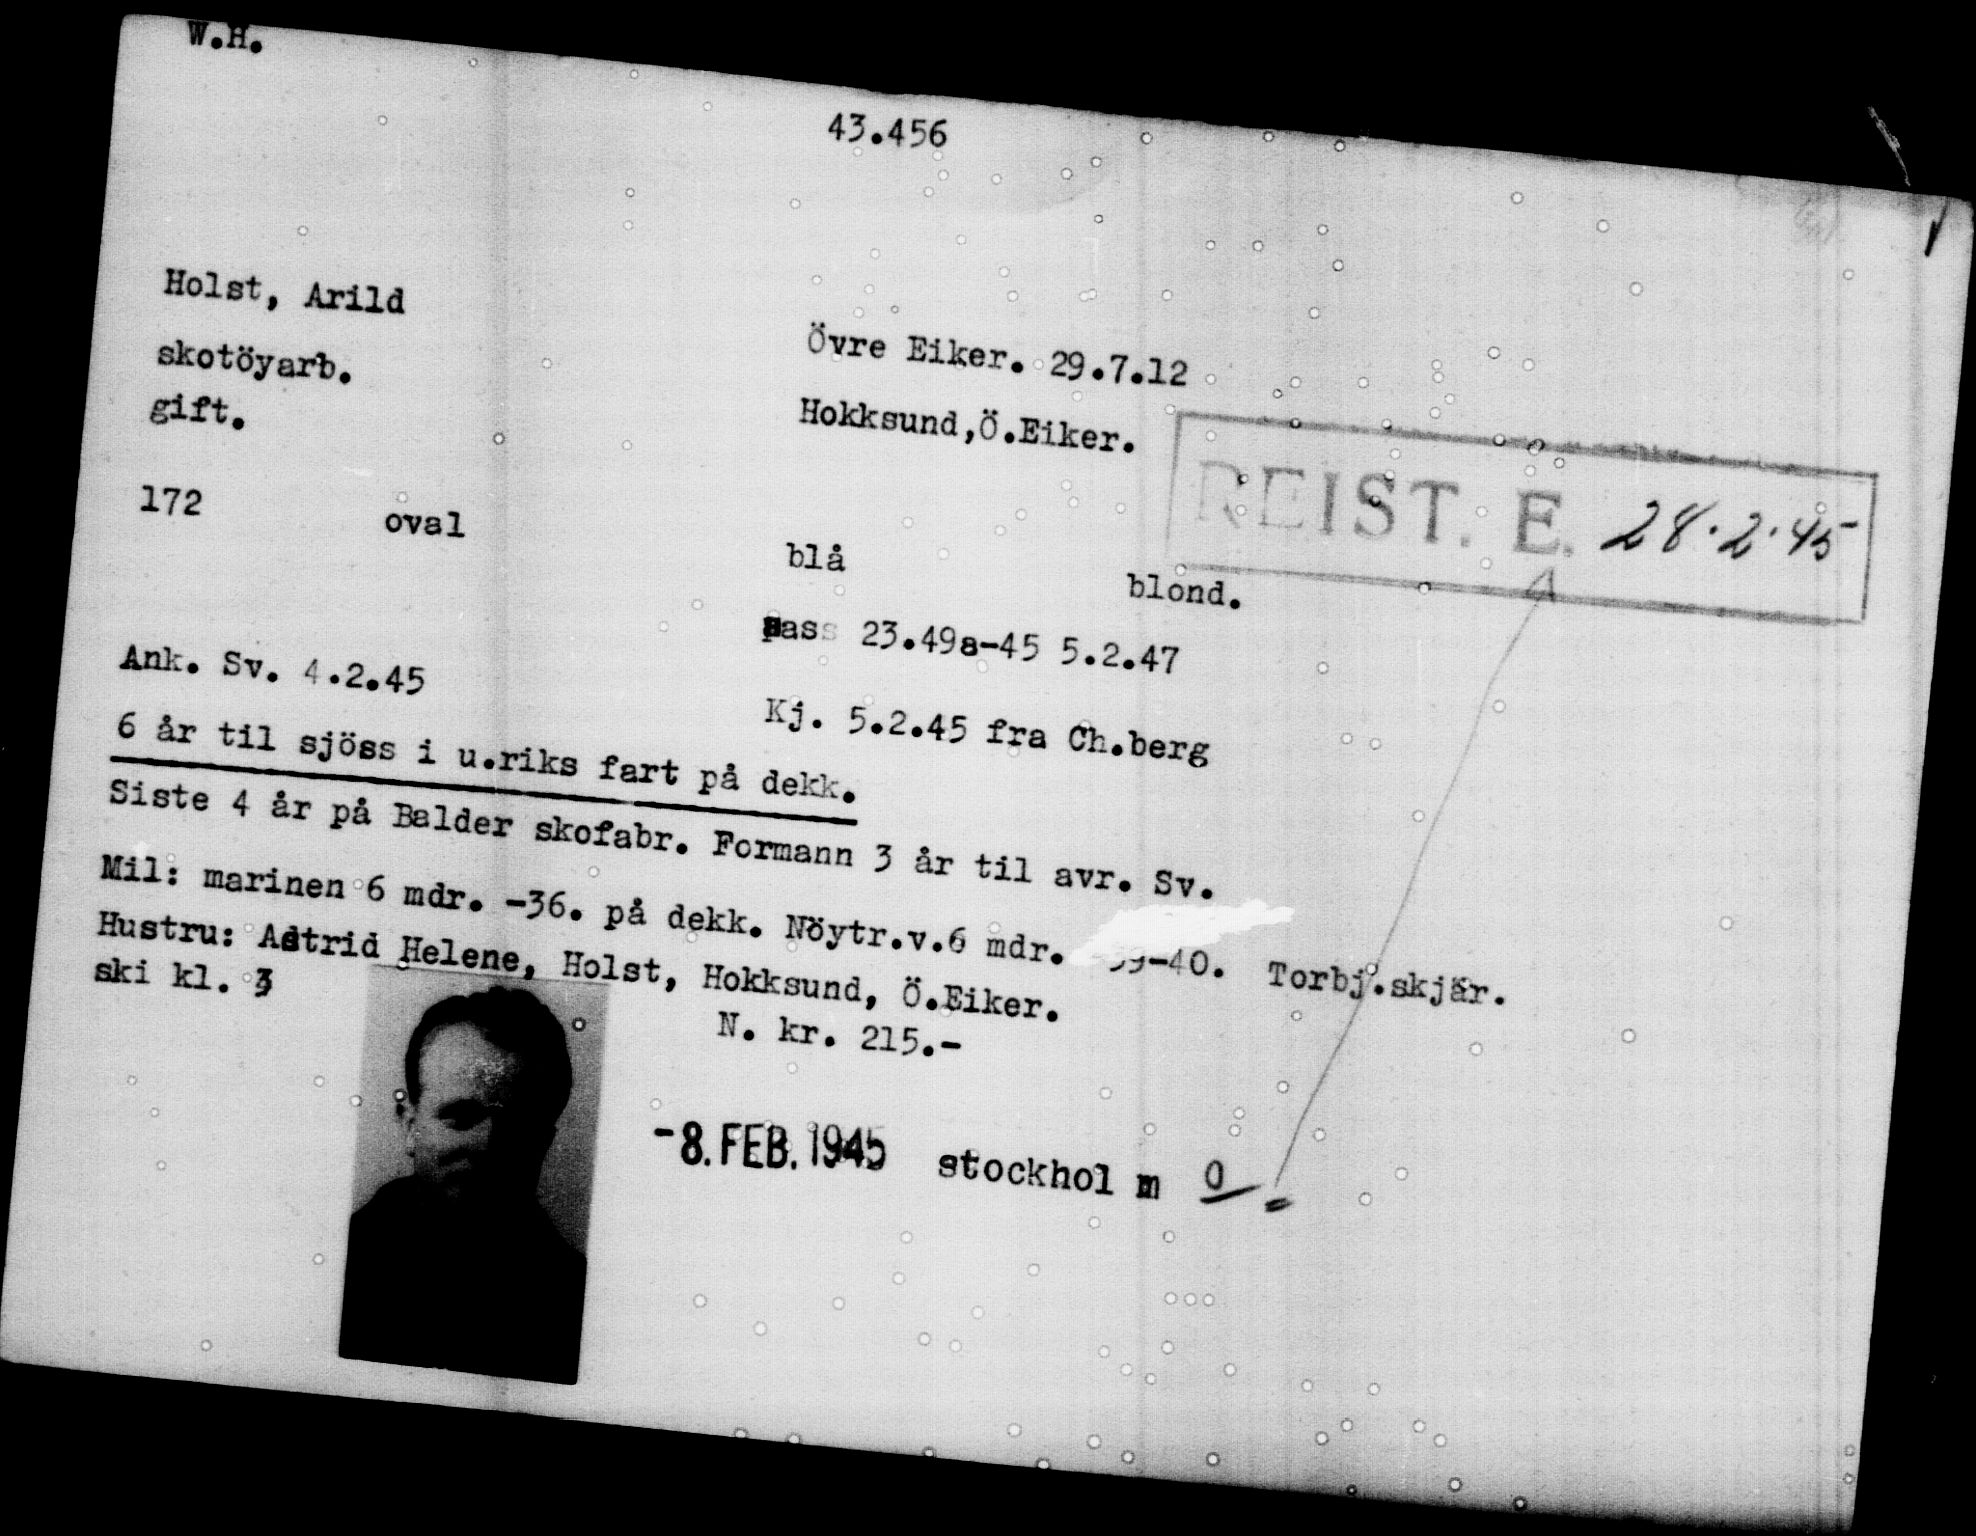 W.H.
43.456
Holst, Arild
skotöyarb.
gift.
Övre Eiker. 29.7.12
Hokksund,Ö.Eiker.
REIST. E. 28.2.45
172 oval blå blond.
pass 23.49a-45 5.2.47
Ank. Sv. 4.2.45
Kj. 5.2.45 fra Ch.berg
6 år til sjöss i u.riks fart på dekk.
Siste 4 år på Balder skofabr. Formann 3 år til avr. Sv.
Mil: marinen 6 mdr. -36. på dekk. Nöytr.v.6 mdr. -39-40. Torbj.skjär.
Hustru: Astrid Helene, Holst, Hokksund, Ö.Eiker.
ski kl. 3
N. kr. 215.-
-8. FEB. 1945 stockholm 0